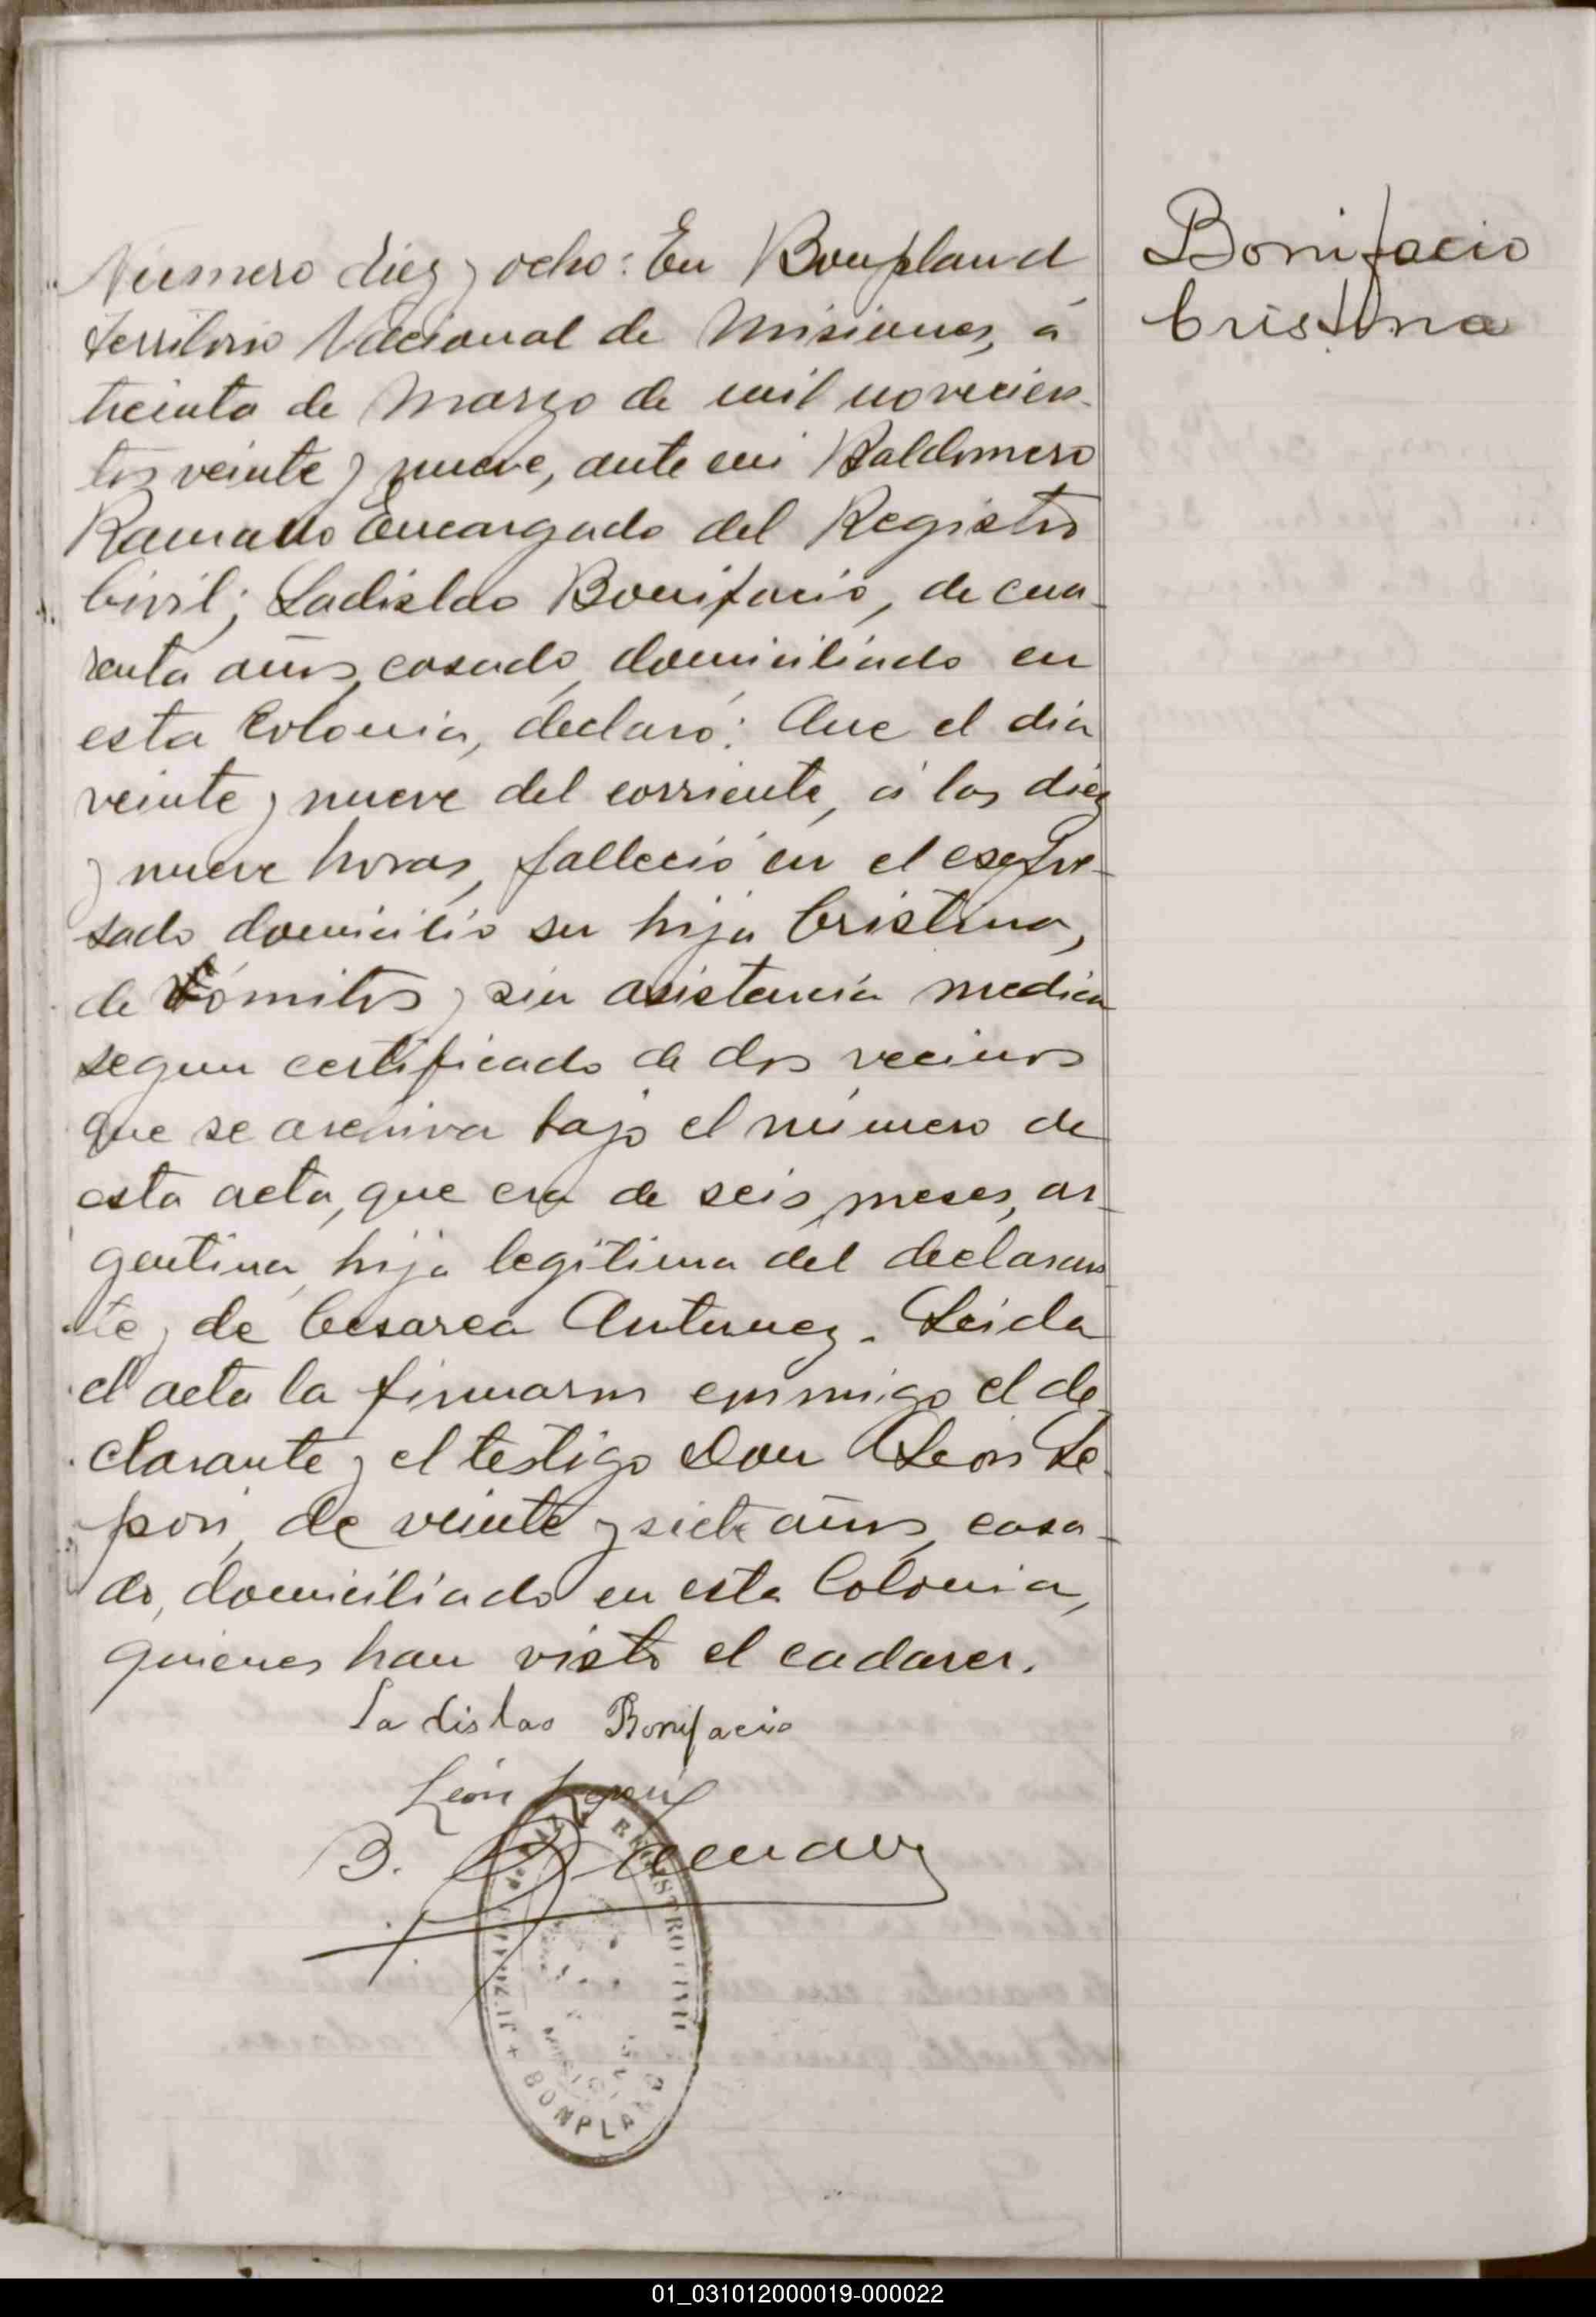 Número diez y ocho: En Bonpland
Bonifacio
Territorio Nacional de Misiones, á
Cristina
treinta de Marzo de mil novecien-
tos veinte y nueve, ante mi Baldomero
Encargado del Registro
Civil; Ladislao Bonifacio, de cua-
renta años, casado, domiciliado en
esta Colonia, declaró: Que el dia
veinte y nueve del corriente, á las diez
y nueve horas, falleció en el expre-
sado domicilio su hija Cristina,
de vómitos y sin asistencia medica
segun certificado de dos vecinos
que se archiva bajo el número de
esta acta, que era de seis meses, ar-
gentina, hija legítima del declaran
te y de Cesarea Antunez. Leida
el acta la firmaron conmigo el de-
clarante y el testigo Don León Le-
pori, de veinte y siete años, casa-
do, domiciliado en esta Colonia,
quienes han visto el cadaver.
Ladislao Bonifacio
León Lepori
B.
REGISTRO CIVIL
BONPLAND
01_031012000019-000022